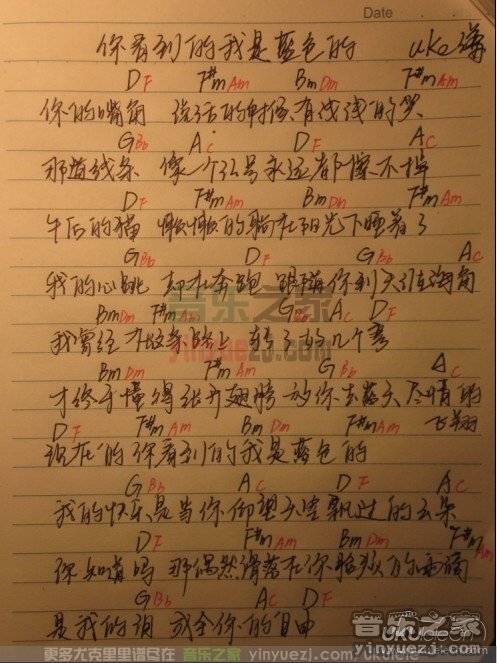 Date
你看到的我是蓝色的 uke谱
DF F#mAm BmDm F#mAm
你的嘴角 说话的时候有浅浅的笑
GBb AC DF AC
那道线条 像一个弧号永远都擦不掉
DF F#mAm BmDm F#mAm
午后的猫 懒懒的躺在阳光下睡着了
GBb DF GBb AC
我的心跳 却在奔跑 跟随你到天涯海角
BmDm F#mAm GBb AC DF
我曾经在这条路上 转了好几个弯
BmDm F#mAm GBb AC
才终于懂得张开翅膀 放你去蓝天尽情的
DF F#mAm BmDm F#mAm 飞翔
现在的你看到的我是蓝色的
GBb AC DF AC
我的快乐是当你仰望天空飘过的云朵
DF F#mAm BmDm F#mAm
你知道吗 那偶然滑落在你脸颊的雨滴
GBb AC DF
是我的泪 成全你的自由
音乐之家
yinyuezj.com
音乐之家
yinyuezj.com
更多尤克里里谱尽在 音乐之家 yinyuezj.com/ukulele